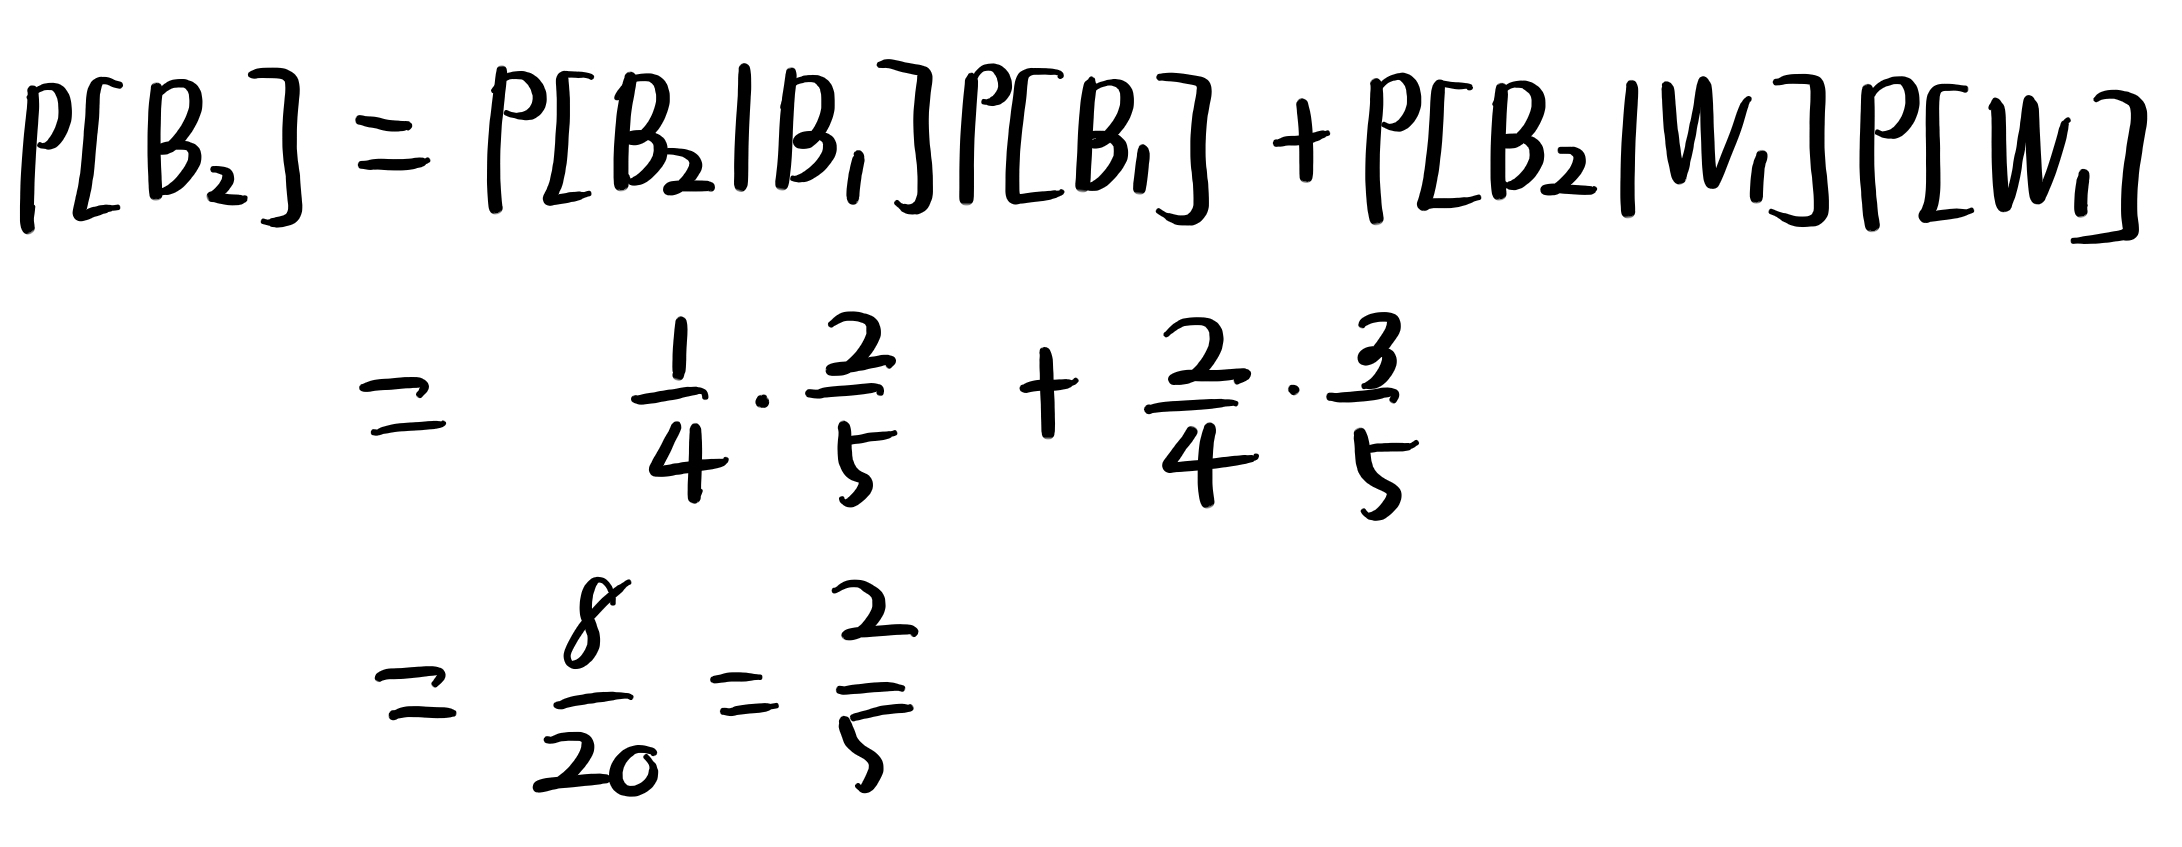 P[B₂] = P[B₂|B₁]P[B₁] + P[B₂|W₁]P[W₁]
= 1/4 · 2/5 + 2/4 · 3/5
= 8/20 = 2/5